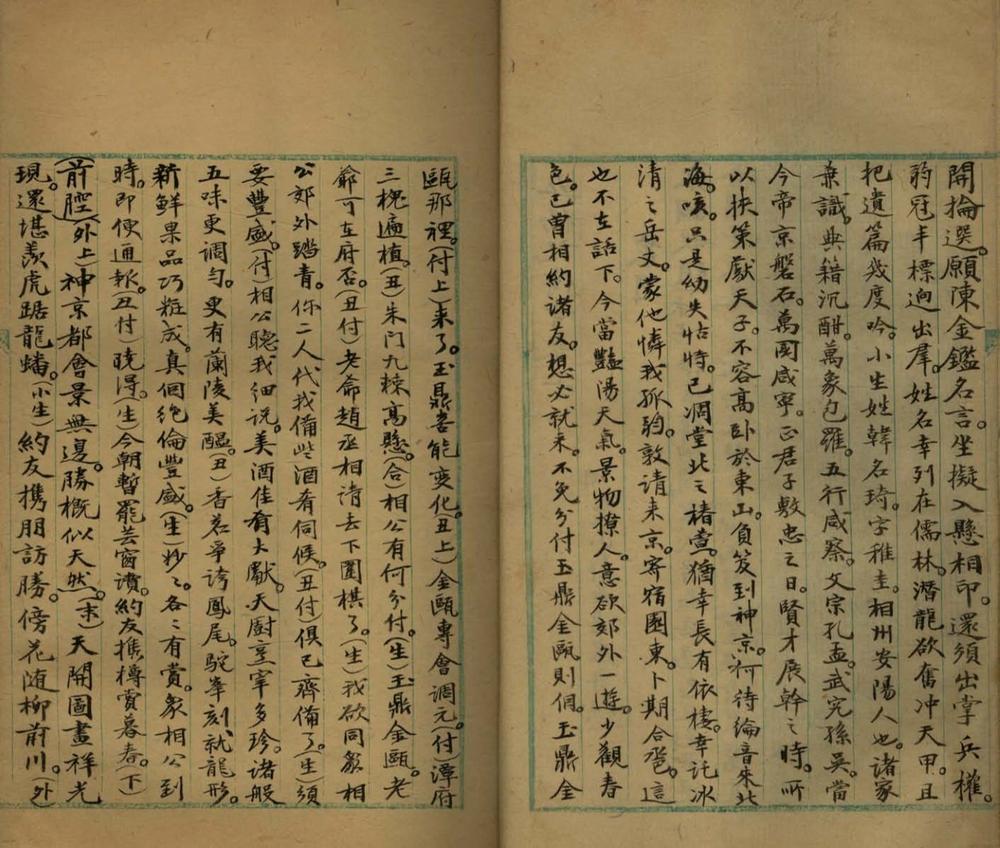 開掄選。願陳金鑑名言。坐擬入懸相印。還須出掌兵權。
豹冠丰標逈出羣。姓名幸列在儒林。潛龍欲奮冲天甲。且
把遺篇幾度吟。小生姓韓名琦。字稚圭。相州安陽人也。諸家
兼識。典籍沉酣。萬象包羅。五行咸察。文宗孔孟。武究孫吳。當
今帝京磐石。萬國咸寧。正君子敷忠之日。賢才展幹之時。所
以挾策獻天子。不容高卧於東山。負笈到神京。何待綸音来北
海。咳。只是幼失怙恃。已凋堂北之椿萱。猶幸長有依棲。幸託冰
清之岳丈。蒙他憐我孤踪。敦請来京。寄宿園東。卜期合卺。這
也不在話下。今當豔陽天氣。景物撩人。意欲郊外一遊。少觀春
色。已曾相約諸友。想必就来。不免分付玉鼎金甌則個。玉鼎金
甌那裡。(付上)来了。玉鼎喜能变化。(丑上)金甌專會調元。(付)潭府
三槐遍植。(丑)朱门九棘高懸。(合)相公有何分付。(生)玉鼎金甌。老
爺可在府否。(丑付)老爺趙丞相請去下圍棋了。(生)我欲同衆相
公郊外踏青。你二人代我備些酒肴伺候。(丑付)俱已齊備了。(生)須
要豐盛。(付)相公聽我细说。美酒佳肴大獻。天厨烹宰多珍。诸般
五味更调匀。更有蘭陵美醖。(丑)香茗争誇鳳尾。駝峯刻就龍形。
新鮮果品巧粧成。真個绝倫豐盛。(生)妙々。各々有賞。衆相公到
時。即便通報。(丑付)曉得。(生)今朝暫罷芸窗讀。約友携樽賞暮春。(下)
(前腔)(外上)神京都會景無邊。勝概似天然。(末)天開圖畫祥光
現。還堪羨虎踞龍蟠。(小生)約友携朋訪勝。傍花随柳前川。(外